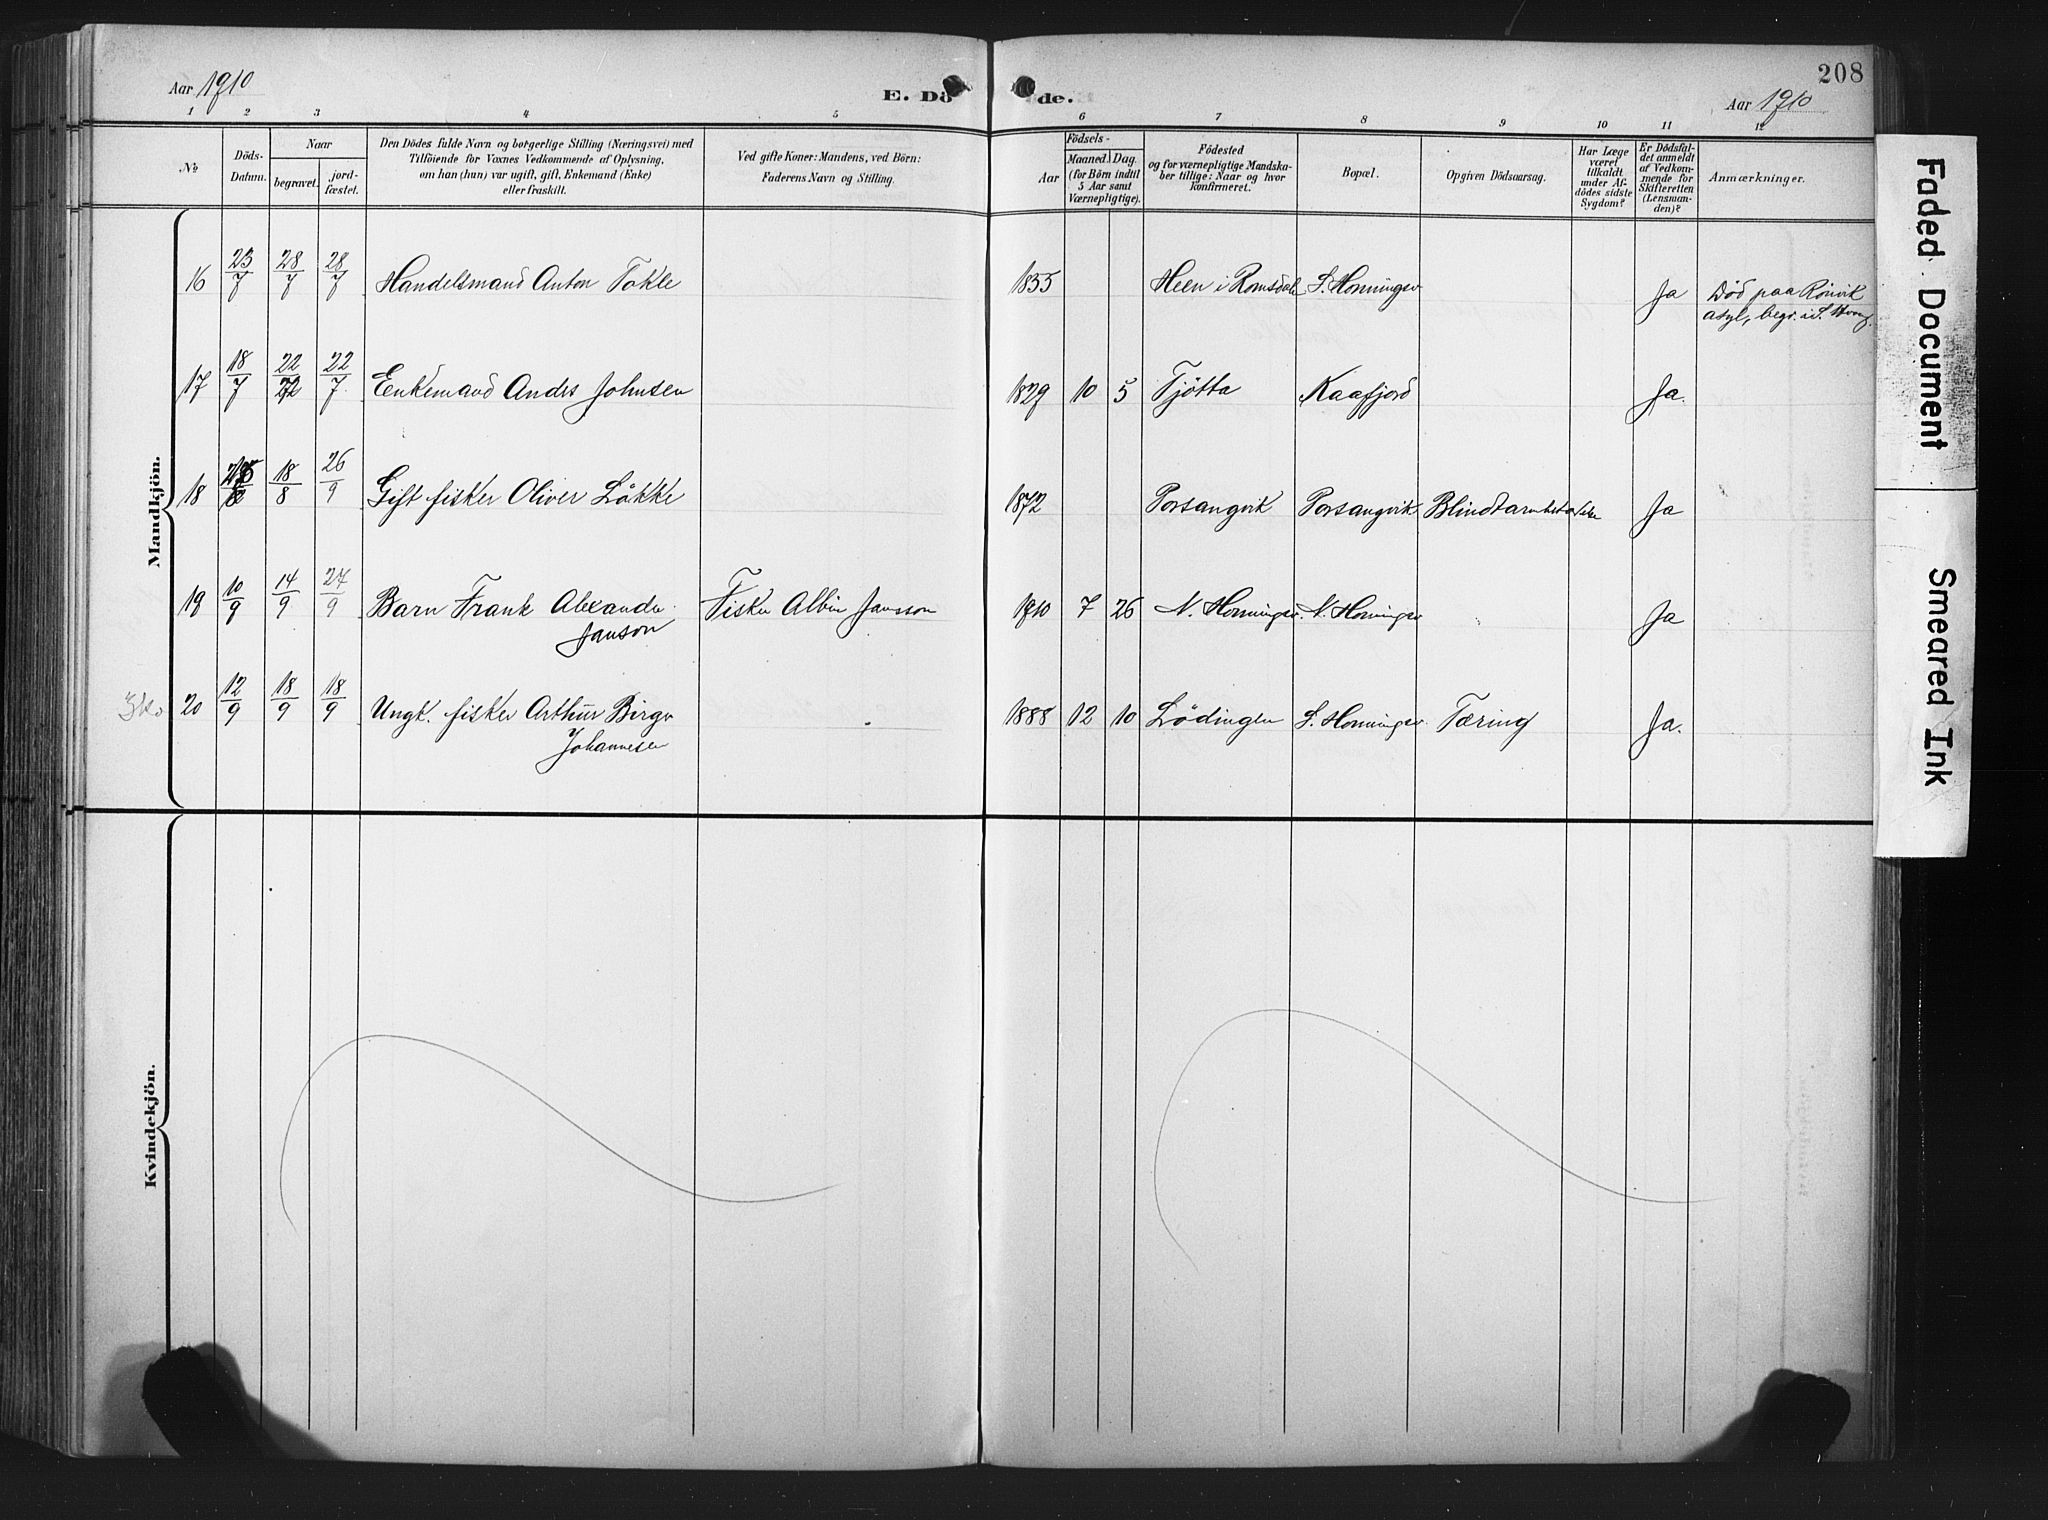 208
Aar 1910
E. Dö de.
Aar 1910
1 2 3 4 5 6 7 8 9 10 11 12
No
Döds-Datum.
Naar
begravet.
jord-fæstet.
Den Dödes fulde Navn og borgerlige Stilling (Næringsvei) med
Tilföiende for Voxnes Vedkommende af Oplysning,
om han (hun) var ugift, gift, Enkemand (Enke)
eller fraskilt.
Ved gifte Koner: Mandens, ved Börn:
Faderens Navn og Stilling.
Födsels-
Aar
Maaned. Dag.
(for Börn indtil
5 Aar samt
Værnepligtige).
Födested
og for værnepligtige Mandska-
ber tillige: Naar og hvor
konfirmeret.
Bopæl.
Opgiven Dödsaarsag.
Har Læge
været
tilkaldt
under Af-
dödes sidste
Sygdom?
Er Dödsfal-
det anmeldt
af Vedkom-
mende for
Skifteretten
(Lensman-
den)?
Anmærkninger.
Mandkjön.
16 23/7 28/7 28/7 Handelsmand Anton Takle 1855 Heen i Romsdale S. Honningsv Ja Död paa Rönvik
asyl, begr. i S. Honng.
17 18/7 22/7 22/7 Eenkemand Andrs Johnsen 1829 10 5 Tjötta Kaafjord Ja.
18 18/8 26/9 Gift fisker Oliver Løkke 1872 Porsangvik Porsangvik Ja
19 10/9 14/9 24/9 Barn Frank Alexander Fisker Albin Jansson 1910 7 26 N. Honningsv. N. Honingsv Ja
Janson
20 12/9 18/9 18/9 Ungk. fisker Arthur Birger 1888 12 10 Lödingen S. Honningsv. Tæring Ja.
Johannesen
Kvindekjön.
Faded Document
Smeared Ink